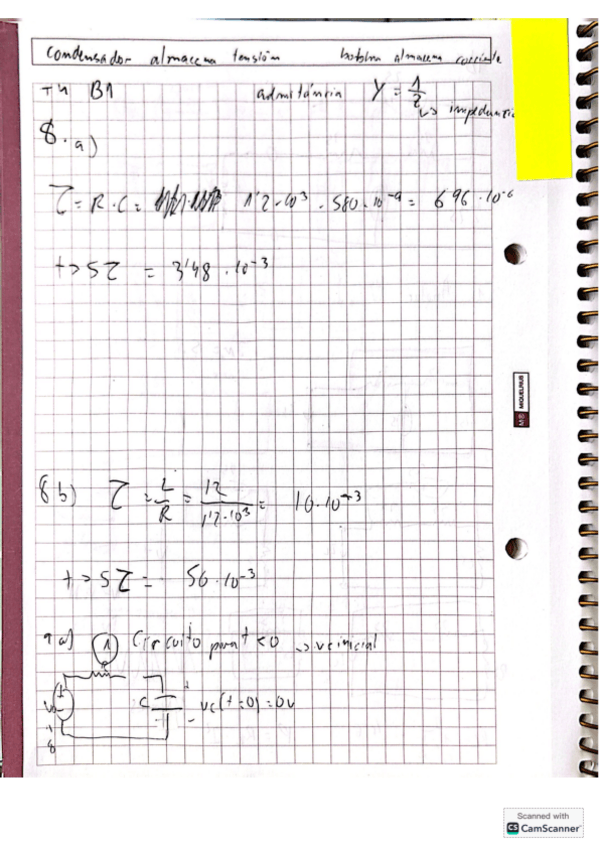 condensador almacena tensión bobina almacena corriente
T4 B1 admitáncia Y = 1/Z
↳ impedancia
8. a)
τ = R · C = 1'2 · 10³ · 580 · 10⁻⁹ = 696 · 10⁻⁶
t > 5τ = 3'48 · 10⁻³
MIQUELRIUS
8 b) τ = L/R = 12/1'2·10³ = 10 · 10⁻³
t > 5τ = 50 · 10⁻³
9 a) 1 Circuito para t < 0 → vc inicial
C + - vc(t=0) = 0v
Scanned with
CS CamScanner